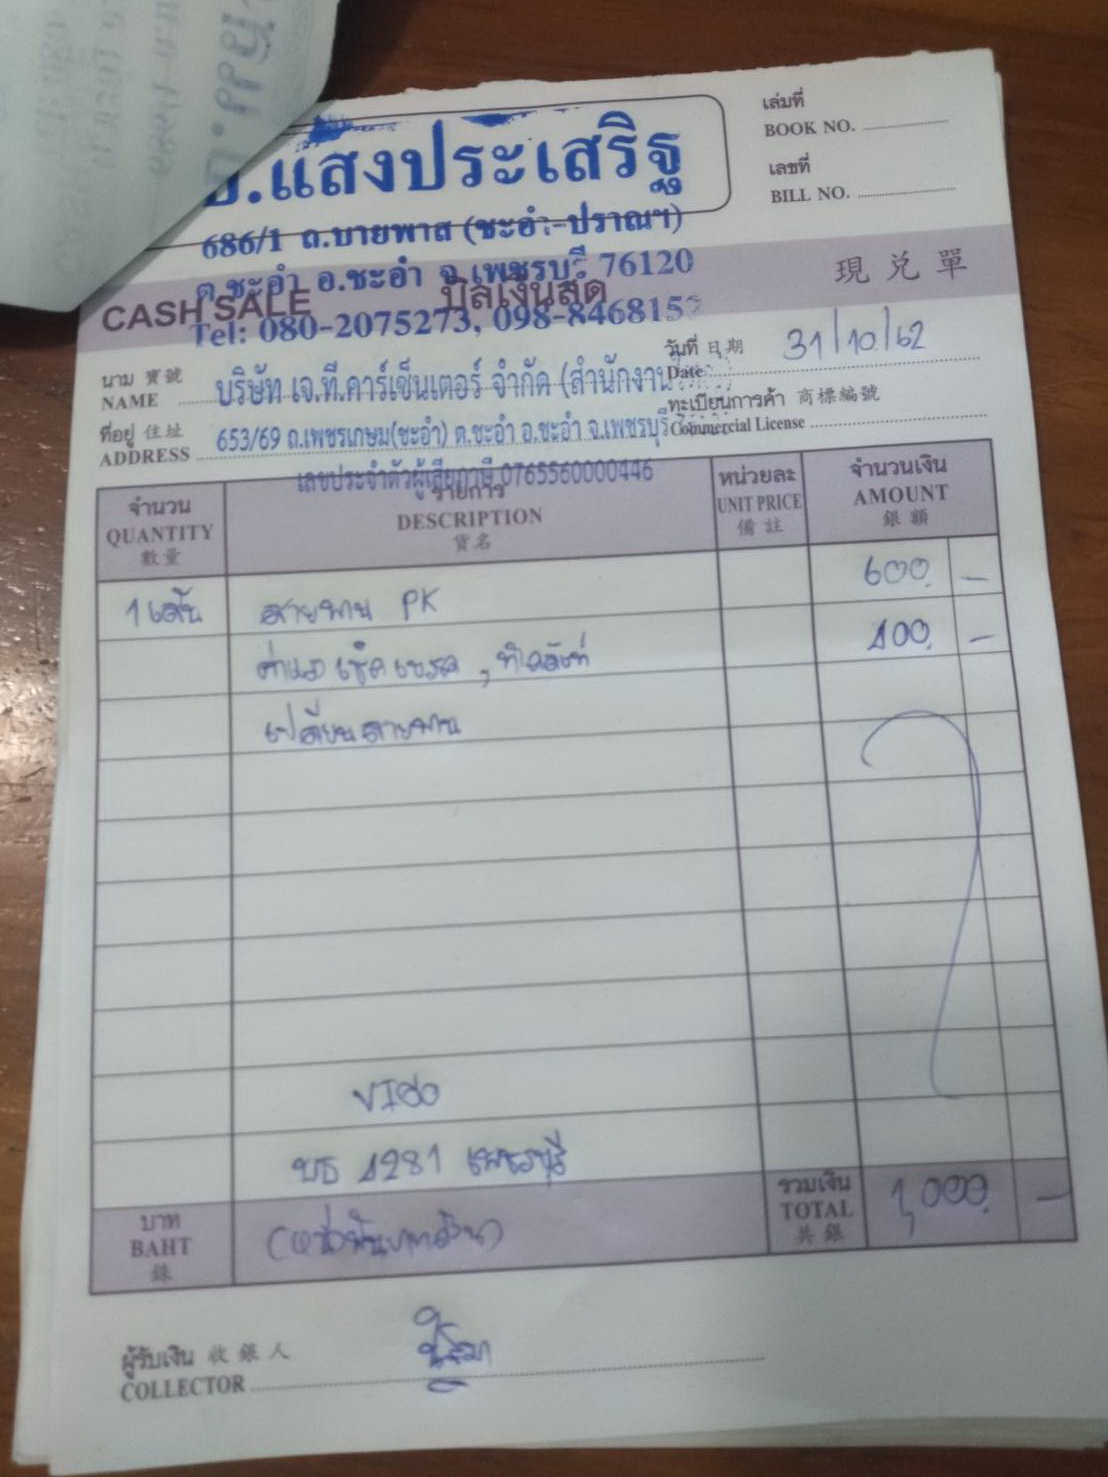 เล่มที่
BOOK NO.
เลขที่
BILL NO.
.แสงประเสริฐ
686/1 ถ.บายพาส (ชะอำ-ปราณฯ)
ต.ชะอำ อ.ชะอำ จ.เพชรบุรี 76120
CASH SALE บิลเงินสด 現兌單
Tel: 080-2075273, 098-846815
วันที่ 日期 31/10/62
Date
นาม 寶號
NAME บริษัท เจ.ที.คาร์เซ็นเตอร์ จำกัด (สำนักงาน
ทะเบียนการค้า 商標編號
Commercial License
ที่อยู่ 住址
ADDRESS 653/69 ถ.เพชรเกษม(ชะอำ) ต.ชะอำ อ.ชะอำ จ.เพชรบุรี
เลขประจำตัวผู้เสียภาษี 0765560000446
จำนวน รายการ หน่วยละ จำนวนเงิน
QUANTITY DESCRIPTION UNIT PRICE AMOUNT
數量 貨名 備註 銀額
1 เส้น สายพาน PK 600 -
ค่าแรง เช็คเบรค, 400 -
เปลี่ยนสายพาน
VIGO
บธ 4281 เพชรบุรี
บาท รวมเงิน
BAHT (หนึ่งพันบาทถ้วน) TOTAL 1,000 -
銖 共銀
ผู้รับเงิน 收銀人
COLLECTOR